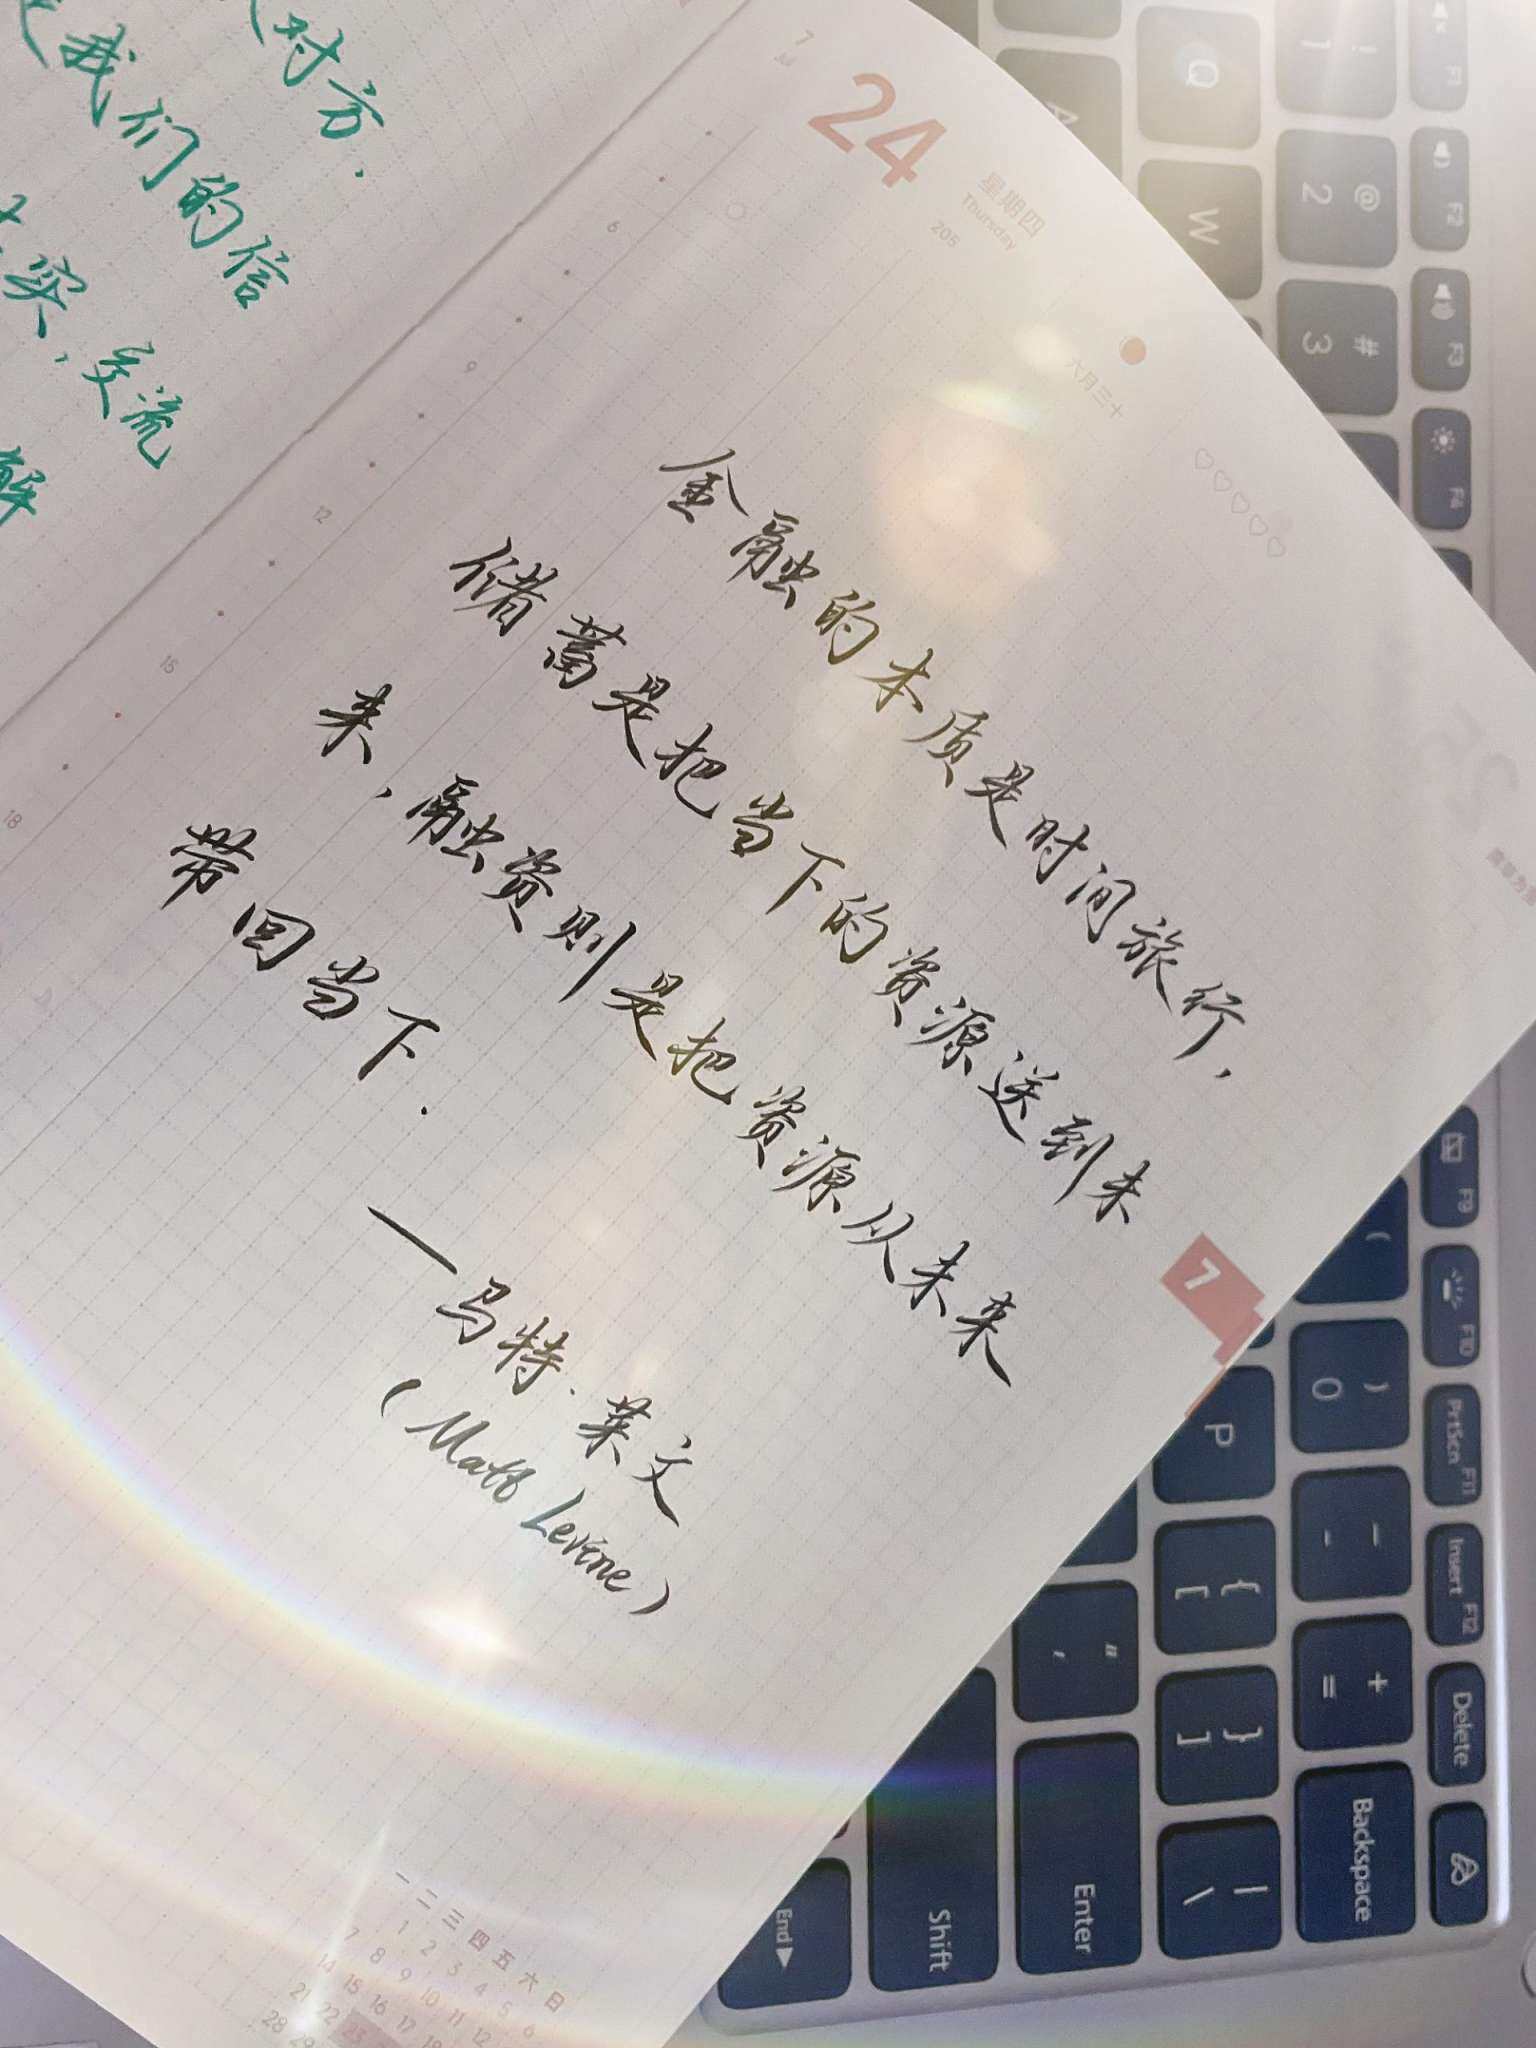 对方.
我们的信
实,交流
解
7
Jul
24
星期四
Thursday
205
六月三十
♡♡♡♡♡
6
9
12
15
18
金融的本质是时间旅行,
储蓄是把当下的资源送到未
来,融资则是把资源从未来
带回当下.
—马特·莱文
(Matt Levine)
7
一 二 三 四 五 六 日
1 2 3 4 5 6
7 8 9 10 11 12
14 15 16 17 18
21 22 23
28 29
Q
W
A
! 1
@ 2
# 3
F1
F2
F3
F4
F9
F10
PrtScn F11
Insert F12
Delete
Backspace
) 0
P
_ -
+ =
{ [
} ]
| \
" '
Enter
Shift
End